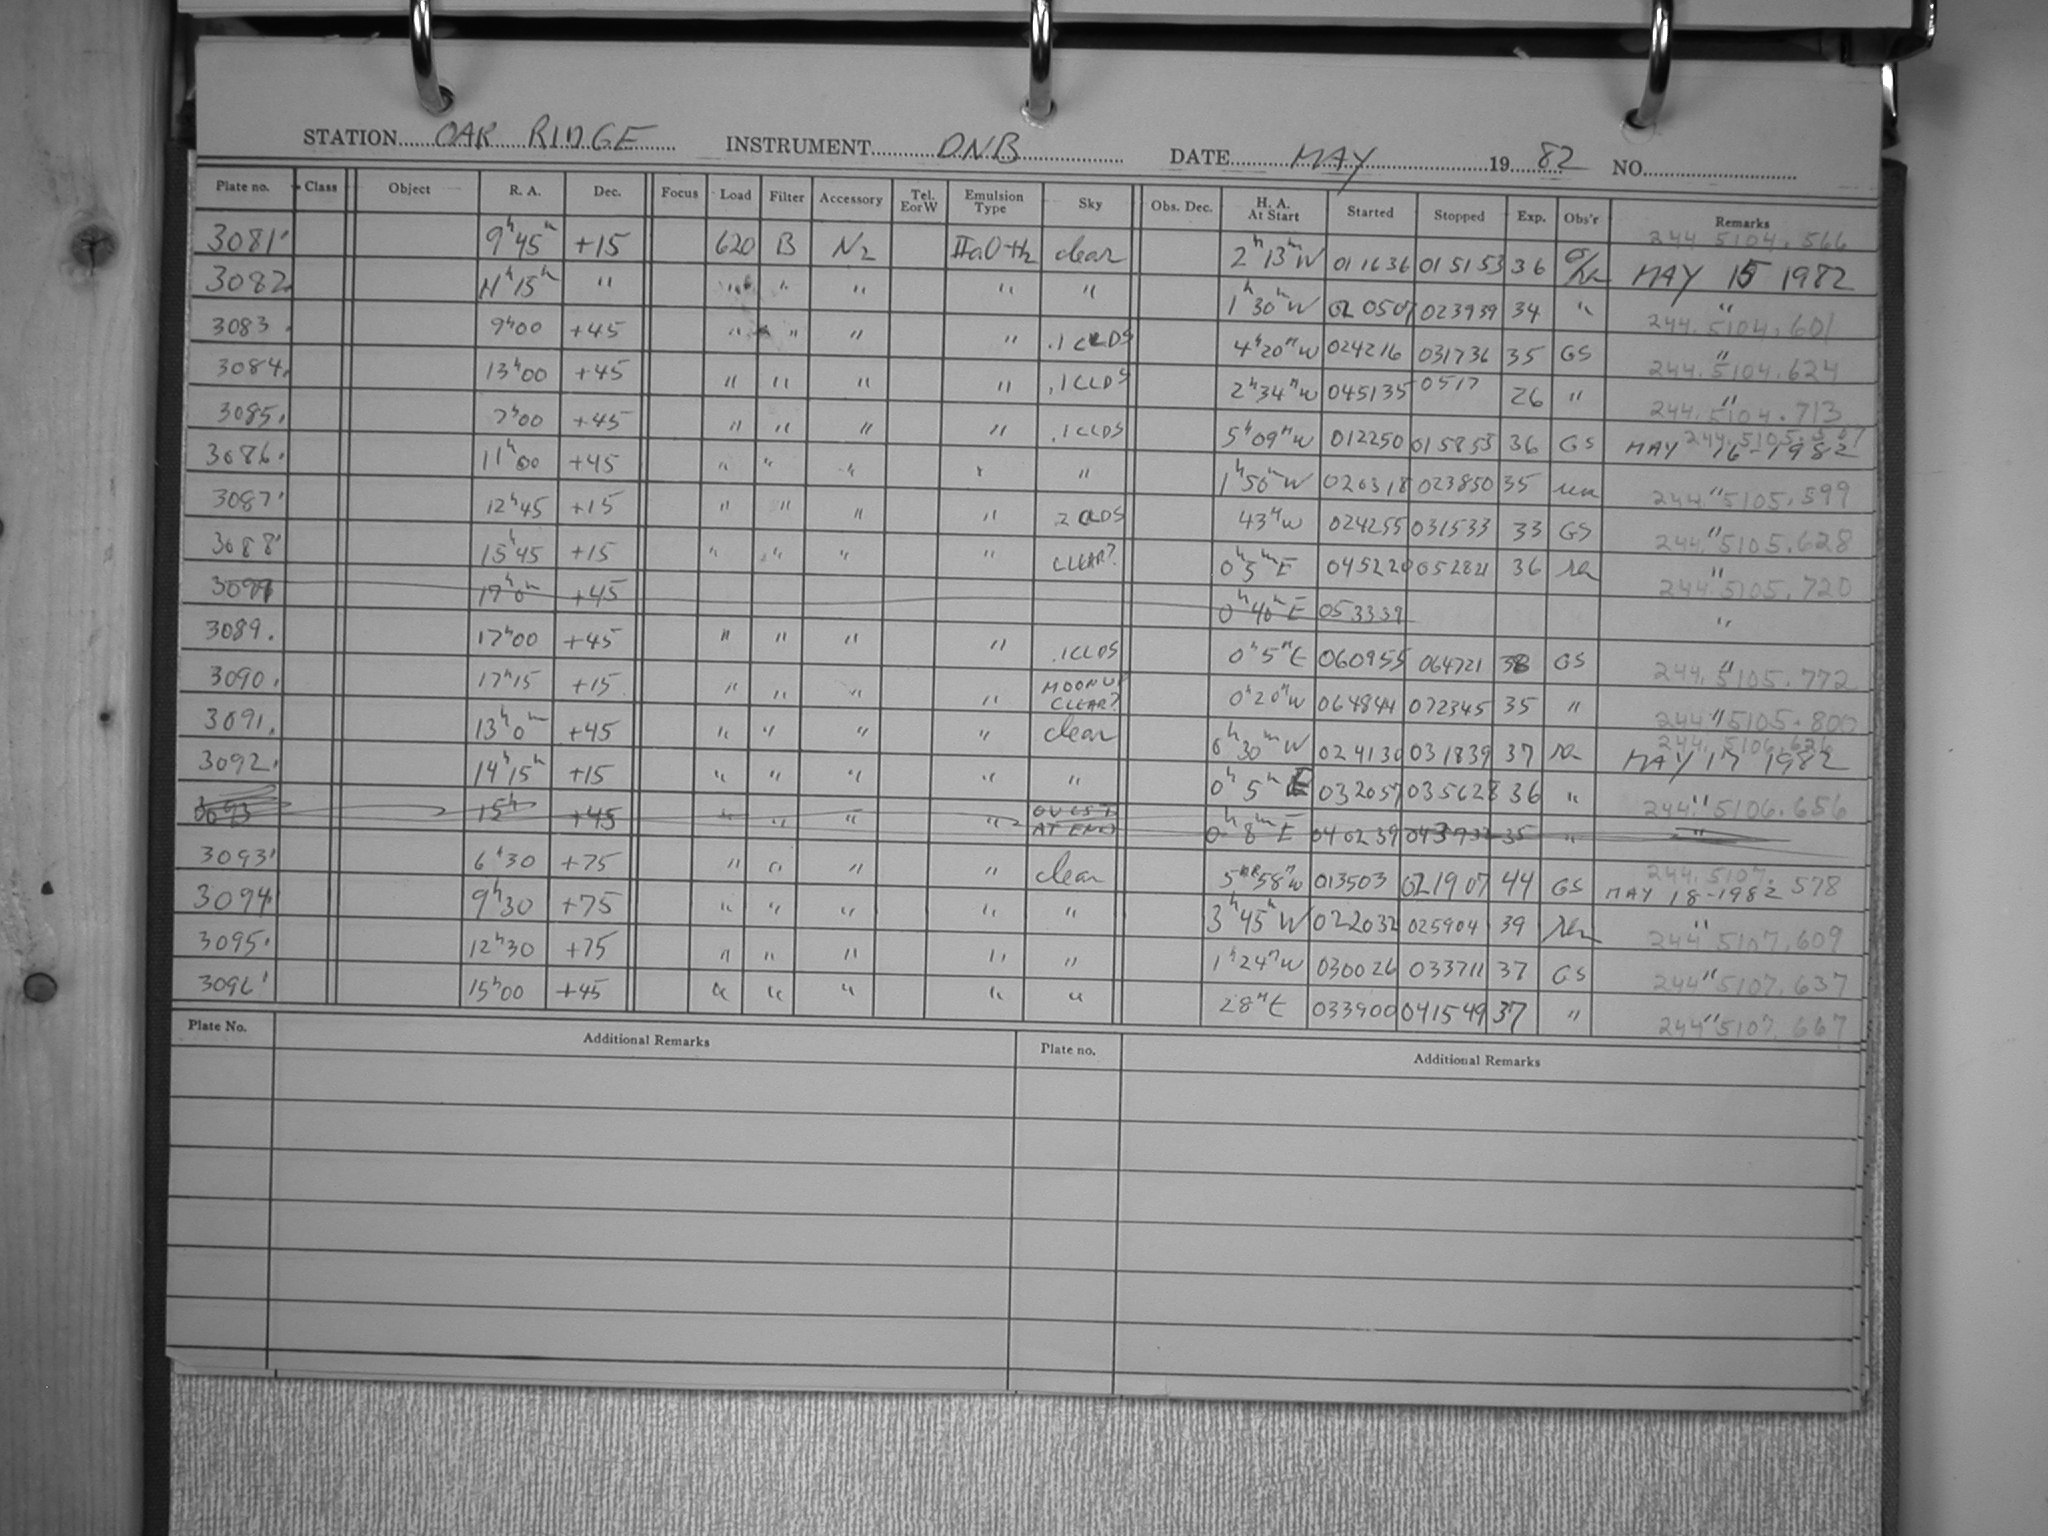 STATION OAK RIDGE INSTRUMENT DNB DATE MAY 19 82 NO.
Plate no. Class Object R. A. Dec. Focus Load Filter Accessory Tel. E or W Emulsion Type Sky Obs. Dec. H. A. At Start Started Stopped Exp. Obs'r Remarks
244 5104.566
3081 9h45m +15 620 B N2 IIaO+h clear 2h13mW 011636 015153 36 MAY 15 1982
3082 11h15m " " " " " " 1h30mW 020507 023939 34 " "
244.5104.601
3083 9h00 +45 " " " " .1 CLDS 4h20mW 024216 031736 35 GS "
244.5104.624
3084 13h00 +45 " " " " .1 CLDS 2h34mW 045135 0517 26 " "
244.5104.713
3085 7h00 +45 " " " " .1 CLDS 5h09mW 012250 015853 36 GS MAY 16-1982
3086 11h00 +45 " " " " " 1h50mW 020318 023850 35 "
244.5105.599
3087 12h45 +15 " " " " .2 CLDS 43mW 024255 031533 33 GS "
244.5105.628
3088 15h45 +15 " " " " CLEAR? 0h5mE 045220 052821 36 "
244.5105.720
17h0m +45 0h40mE 053339 "
3089 17h00 +45 " " " " .1 CLDS 0h5mE 060955 064721 38 GS "
244.5105.772
3090 17h15 +15 " " " " MOON UP CLEAR? 0h20mW 064844 072345 35 " "
244 5105.800
3091 13h0m +45 " " " " clear 0h30mW 024130 031839 37 MAY 17 1982
3092 14h15m +15 " " " " " 0h5mE 032057 035628 36 " "
244 5106.656
3093 15h +45 " " " " OVCST AT END 0h8mE 040239 043732 35 " "
244.5107.578
3093 6h30 +75 " " " " clear 5HR58mW 013503 021907 44 GS MAY 18-1982
3094 9h30 +75 " " " " " 3h45mW 022032 025904 39 "
244 5107.609
3095 12h30 +75 " " " " " 1h24mW 030026 033711 37 GS "
244 5107.637
3096 15h00 +45 " " " " " 28mE 033900 041549 37 " "
244 5107.667
Plate No. Additional Remarks Plate no. Additional Remarks